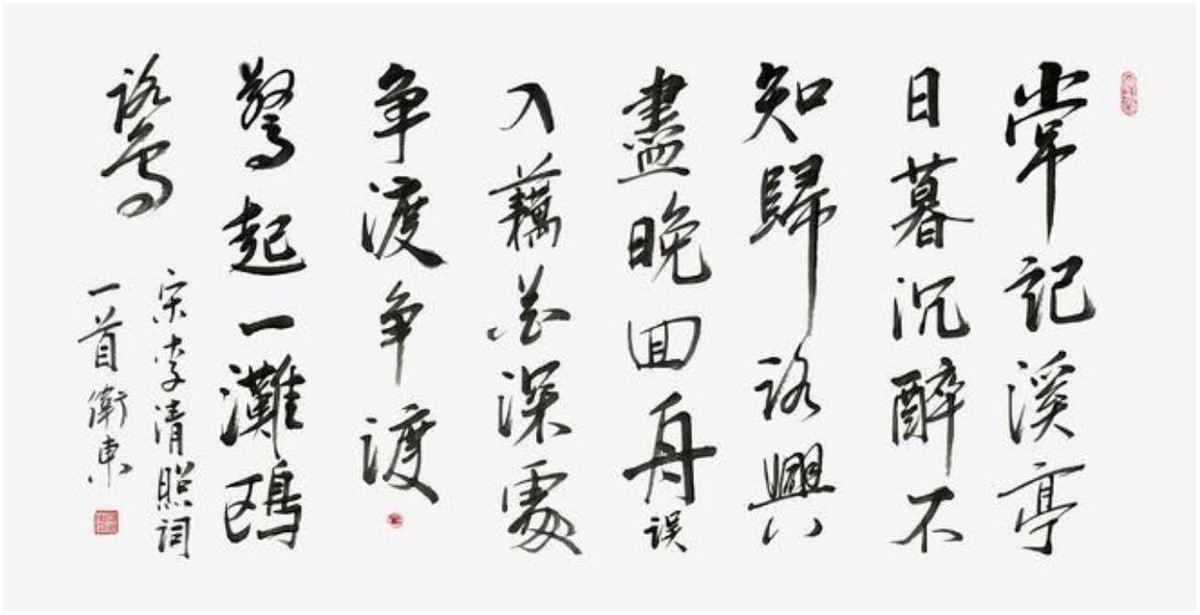 常記溪亭
日暮沉醉不
知歸路興
盡晚回舟误
入藕花深處
争渡争渡
驚起一灘鷗
鷺
宋李清照词
一首衛東